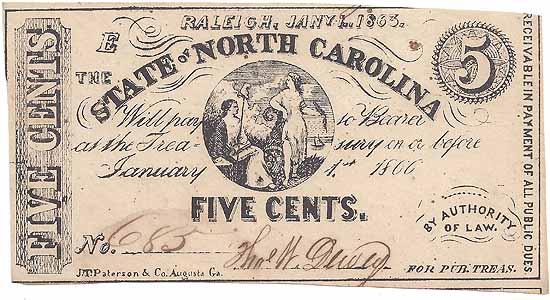 FIVE CENTS.
RALEIGH, JANY 1, 1863.
E
THE
STATE of NORTH CAROLINA
5
Will pay to Bearer
at the Trea- sury on or before
January 1st 1866
FIVE CENTS.
BY AUTHORITY
OF LAW.
No. 685 Thos W. Dewey
J.T. Paterson & Co. Augusta Ga. FOR PUB. TREAS.
RECEIVABLE IN PAYMENT OF ALL PUBLIC DUES